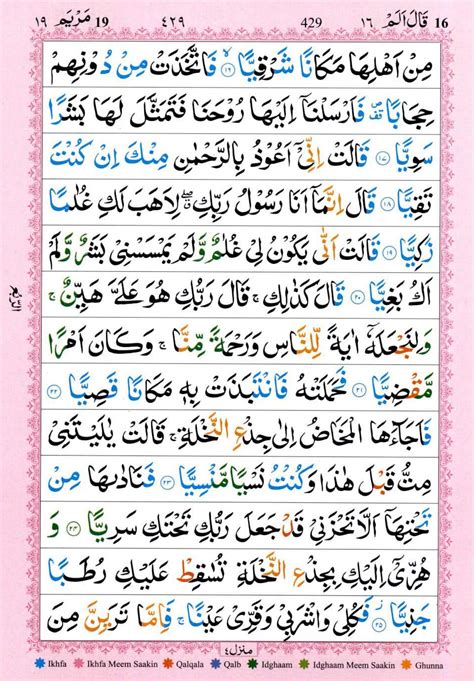 ١٦ قَالَ اَلَمْ 16
429
٤٢٩
١٩ مَرْيَم 19
مِنْ اَهْلِهَا مَكَانًا شَرْقِيًّا ۙ﴿١٦﴾ فَاتَّخَذَتْ مِنْ دُوْنِهِمْ
حِجَابًا ۪۫ فَاَرْسَلْنَاۤ اِلَيْهَا رُوْحَنَا فَتَمَثَّلَ لَهَا بَشَرًا
سَوِيًّا ﴿١٧﴾ قَالَتْ اِنِّيْۤ اَعُوْذُ بِالرَّحْمٰنِ مِنْكَ اِنْ كُنْتَ
تَقِيًّا ﴿١٨﴾ قَالَ اِنَّمَاۤ اَنَا رَسُوْلُ رَبِّكِ ۖۗ لِاَهَبَ لَكِ غُلٰمًا
زَكِيًّا ﴿١٩﴾ قَالَتْ اَنّٰى يَكُوْنُ لِيْ غُلٰمٌ وَّلَمْ يَمْسَسْنِيْ بَشَرٌ وَّلَمْ
اَكُ بَغِيًّا ﴿٢٠﴾ قَالَ كَذٰلِكِ ۚ قَالَ رَبُّكِ هُوَ عَلَيَّ هَيِّنٌ ۚ
وَلِنَجْعَلَهٗۤ اٰيَةً لِّلنَّاسِ وَرَحْمَةً مِّنَّا ۚ وَكَانَ اَمْرًا
مَّقْضِيًّا ﴿٢١﴾ فَحَمَلَتْهُ فَانْتَبَذَتْ بِهٖ مَكَانًا قَصِيًّا ﴿٢٢﴾
فَاَجَآءَهَا الْمَخَاضُ اِلٰى جِذْعِ النَّخْلَةِ ۚ قَالَتْ يٰلَيْتَنِيْ
مِتُّ قَبْلَ هٰذَا وَكُنْتُ نَسْيًا مَّنْسِيًّا ﴿٢٣﴾ فَنَادٰىهَا مِنْ
تَحْتِهَاۤ اَلَّا تَحْزَنِيْ قَدْ جَعَلَ رَبُّكِ تَحْتَكِ سَرِيًّا ﴿٢٤﴾ وَ
هُزِّيْۤ اِلَيْكِ بِجِذْعِ النَّخْلَةِ تُسٰقِطْ عَلَيْكِ رُطَبًا
جَنِيًّا ﴿٢٥﴾ فَكُلِيْ وَاشْرَبِيْ وَقَرِّيْ عَيْنًا ۚ فَاِمَّا تَرَيِنَّ مِنَ
منزل ٤
Ikhfa Ikhfa Meem Saakin Qalqala Qalb Idghaam Idghaam Meem Saakin Ghunna